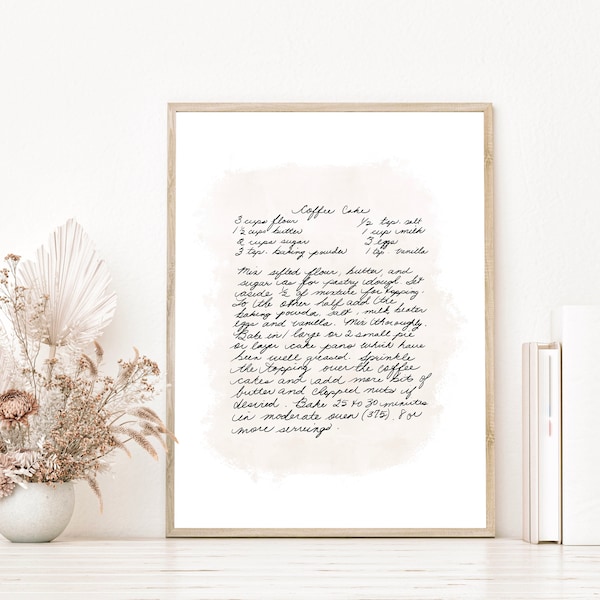 Coffee Cake
3 cups flour ½ tsp. salt
1 ½ cups butter 1 cup milk
2 cups sugar 3 eggs
3 tsp. baking powder 1 tsp. vanilla
Mix sifted flour, butter, and
sugar as for pastry dough. Set
aside ½ of mixture for topping.
To the other half add the
baking powder, salt, milk beaten
eggs and vanilla. Mix thoroughly.
Bake in 1 large or 2 small pie
or layer cake pans which have
been well greased. Sprinkle
the topping over the coffee
cakes and add more bits of
butter and chopped nuts if
desired. Bake 25 to 30 minutes
in moderate oven (375). 8 or
more servings.